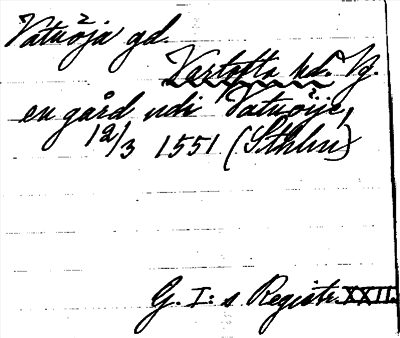 Vatuöja gd.
Vartofta hd. Vg.
en gård udi Vatuöije,
12/3 1551 (Sthlm)
G. I:s Registr. XXII.